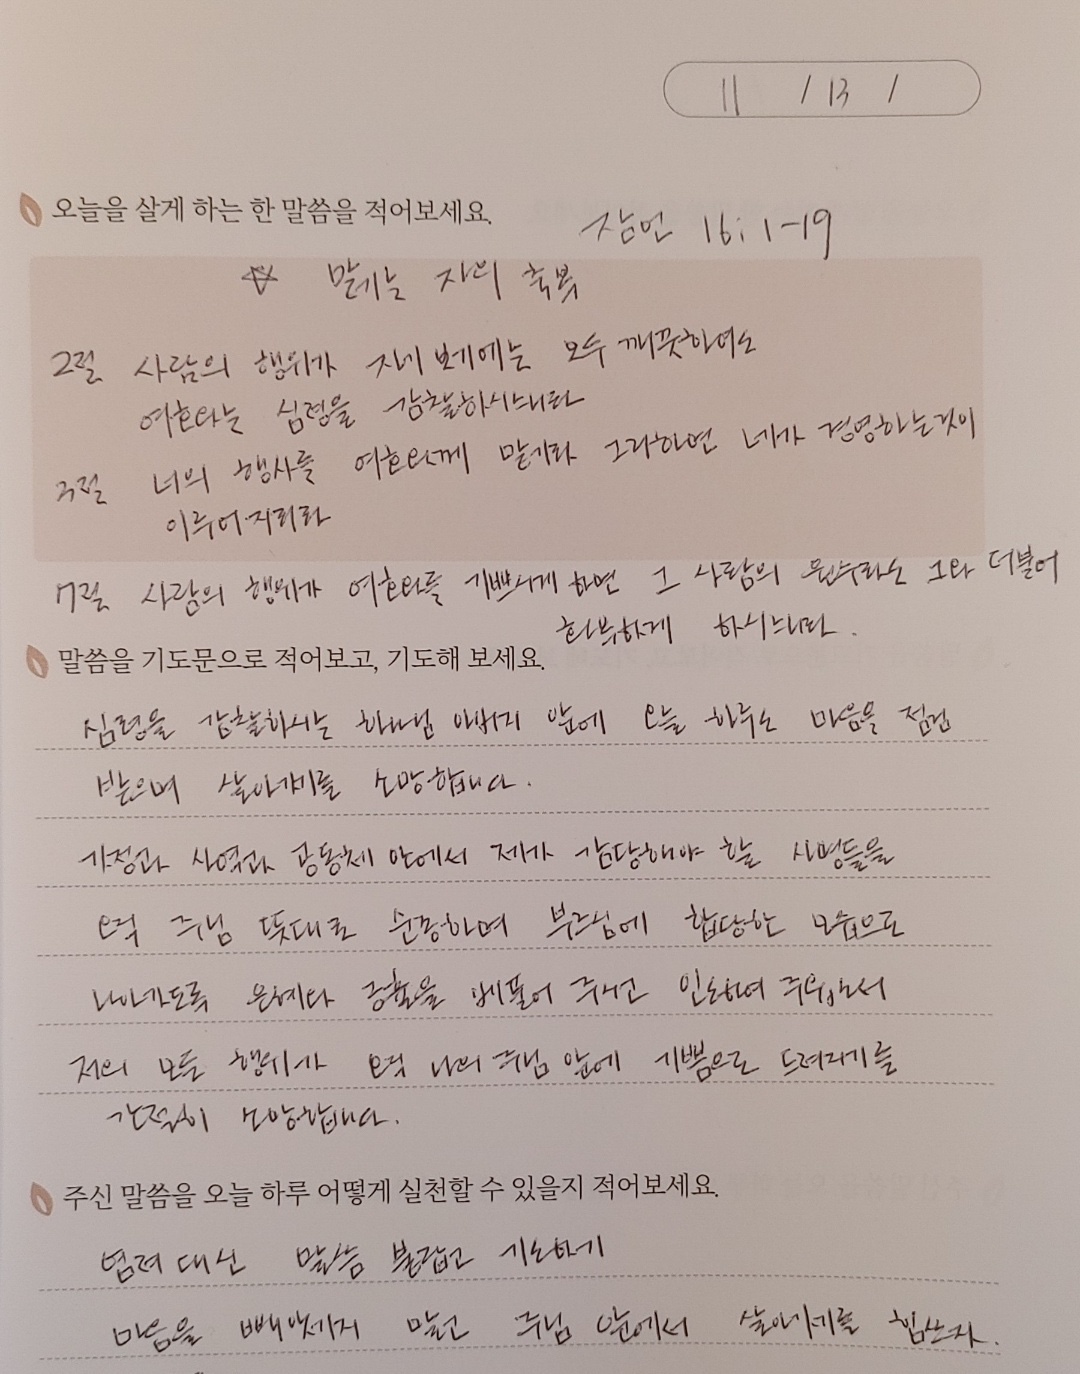 11 / 13 /
오늘을 살게 하는 한 말씀을 적어보세요.
잠언 16:1-19
☆ 맡기는 자의 축복
2절 사람의 행위가 자기 보기에는 모두 깨끗하여도
여호와는 심령을 감찰하시느니라
3절 너의 행사를 여호와께 맡기라 그리하면 네가 경영하는것이
이루어지리라
7절 사람의 행위가 여호와를 기쁘시게 하면 그 사람의 원수라도 그와 더불어
화목하게 하시느니라.
말씀을 기도문으로 적어보고, 기도해 보세요.
심령을 감찰하시는 하나님 아버지 앞에 오늘 하루도 마음을 점검
받으며 살아가기를 소망합니다.
가정과 사역과 공동체 안에서 제가 감당해야 할 사명들을
오직 주님 뜻대로 순종하며 부르심에 합당한 모습으로
나아가도록 은혜와 긍휼을 베풀어 주시고 인도하여 주옵소서
저의 모든 행위가 오직 나의 주님 앞에 기쁨으로 드려지기를
간절히 소망합니다.
주신 말씀을 오늘 하루 어떻게 실천할 수 있을지 적어보세요.
염려 대신 말씀 붙잡고 기도하기
마음을 빼앗기지 말고 주님 앞에서 살아가기를 힘쓰자.